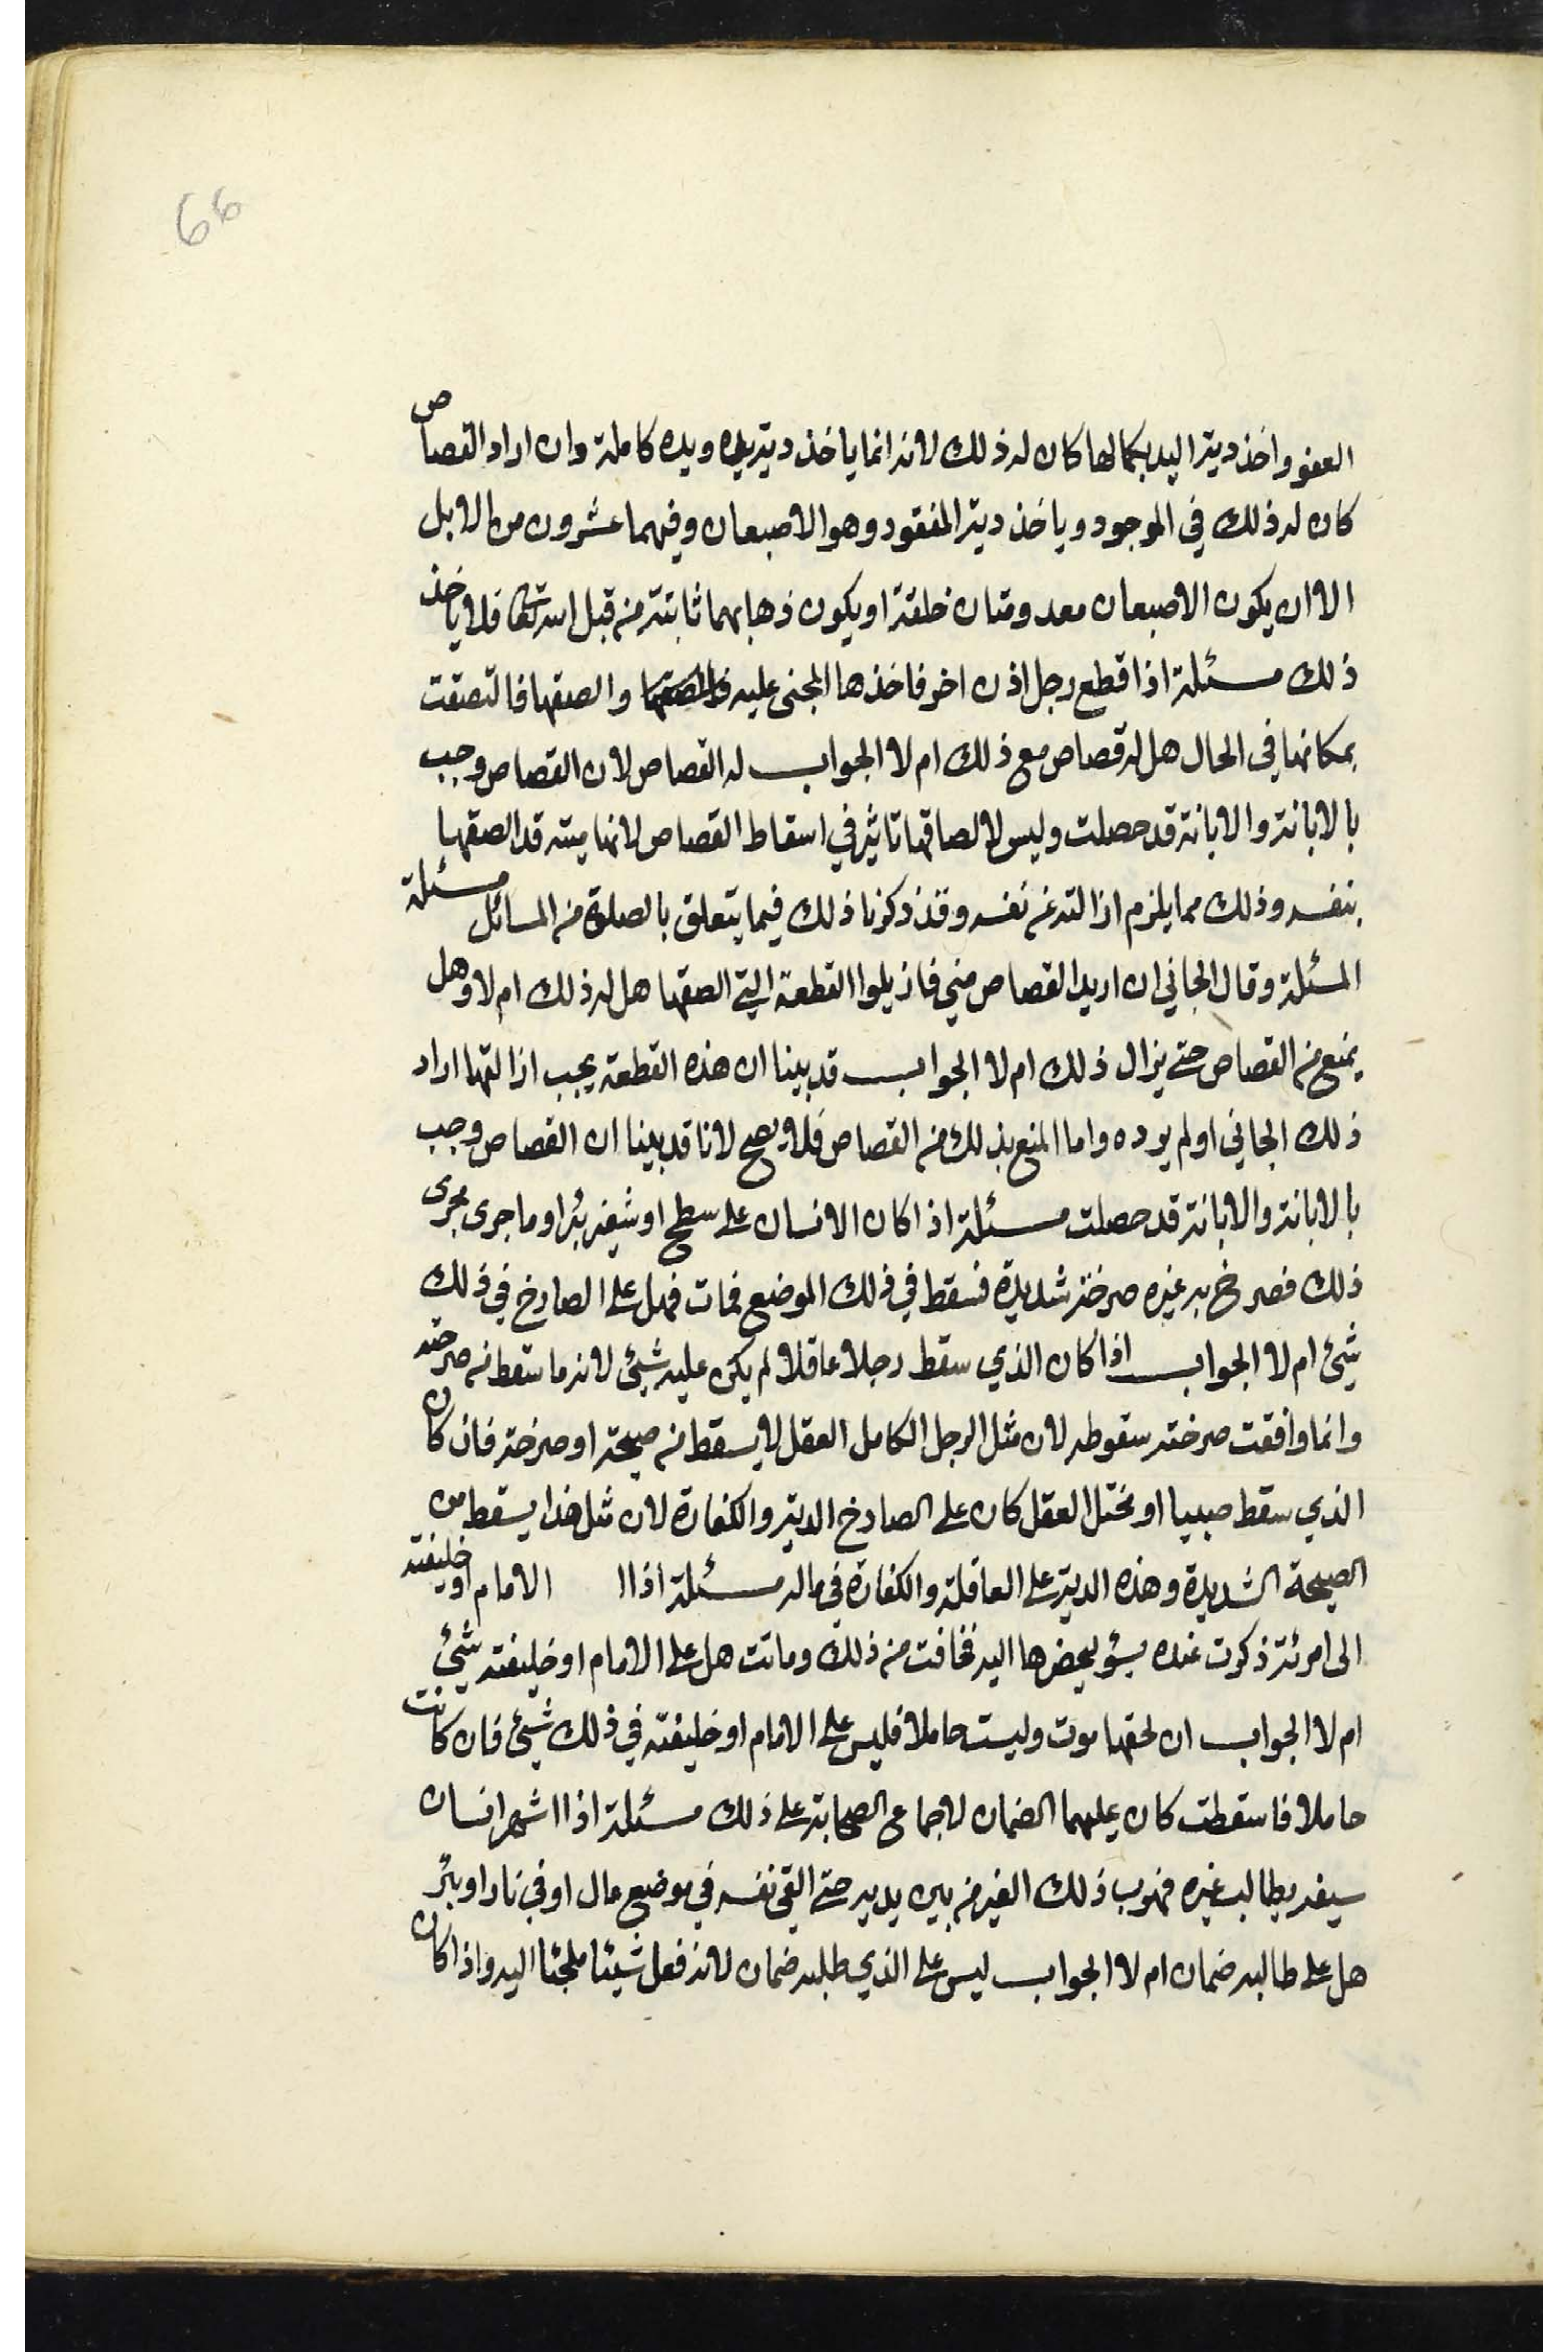 66
العفو واخذ دية اليد بكمالها كان له ذلك لانه انما ياخذ دية يده ويده كاملة وان اراد القصاص
كان له ذلك في الموجود وياخذ دية المفقود وهو الاصبعان وفيهما عشرون من الابل
الا ان يكون الاصبعان معدومتان خلقة او يكون ذهابهما ثابتة من قبل فلا ياخذ
ذلك مسئلة اذا قطع رجل اذن اخر فاخذها المجنى عليه والصقها فالتصقت
بمكانها في الحال هل له قصاص مع ذلك ام لا الجواب له القصاص لان القصاص وجب
بالابانة والابانة قد حصلت وليس لالصاقها تاثير في اسقاط القصاص لانها ميتة قد الصقها
بنفسه وذلك مما يلزم ازالته عن نفسه وقد ذكرنا ذلك فيما يتعلق بالصلوة من المسائل مسئلة
المسئلة وقال الجاني ان اريد القصاص مني فازيلوا القطعة التي الصقها هل له ذلك ام لا وهل
يمنع من القصاص حتى يزال ذلك ام لا الجواب قد بينا ان هذه القطعة يجب ازالتها اراد
ذلك الجاني او لم يرده واما المنع بذلك من القصاص فلا يصح لانا قد بينا ان القصاص وجب
بالابانة والابانة قد حصلت مسئلة اذا كان الانسان على سطح او شفير بئر او ما جرى مجرى
ذلك فصرخ به غيره صرخة شديدة فسقط في ذلك الموضع فمات فهل على الصارخ في ذلك
شيئ ام لا الجواب اذا كان الذي سقط رجلا عاقلا لم يكن عليه شيئ لانه ما سقط من صرخته
وانما وافقت صرخته سقوطه لان مثل الرجل الكامل العقل لا يسقط من صيحة او صرخة فان كان
الذي سقط صبيا او مختل العقل كان على الصارخ الدية والكفارة لان مثل هذا يسقط من
الصيحة الشديدة وهذه الدية على العاقلة والكفارة في ماله مسئلة اذا ا الامام او خليفته
الى امرئة ذكرت عنده بسؤ ليحضرها اليه فخافت من ذلك وماتت هل على الامام او خليفته شيئ
ام لا الجواب ان لحقها موت وليست حاملا فليس على الامام او خليفته في ذلك شيئ فان كانت
حاملا فاسقطت كان عليهما الضمان لاجماع الصحابة على ذلك مسئلة اذا اشهر انسان
سيفه يطالب غيره فهرب ذلك الغير من بين يديه حتى القى نفسه في موضع عال او في نار او بئر
هل على طالبه ضمان ام لا الجواب ليس على الذي طلبه ضمان لانه فعل شيئا ملجئا اليه واذا كان